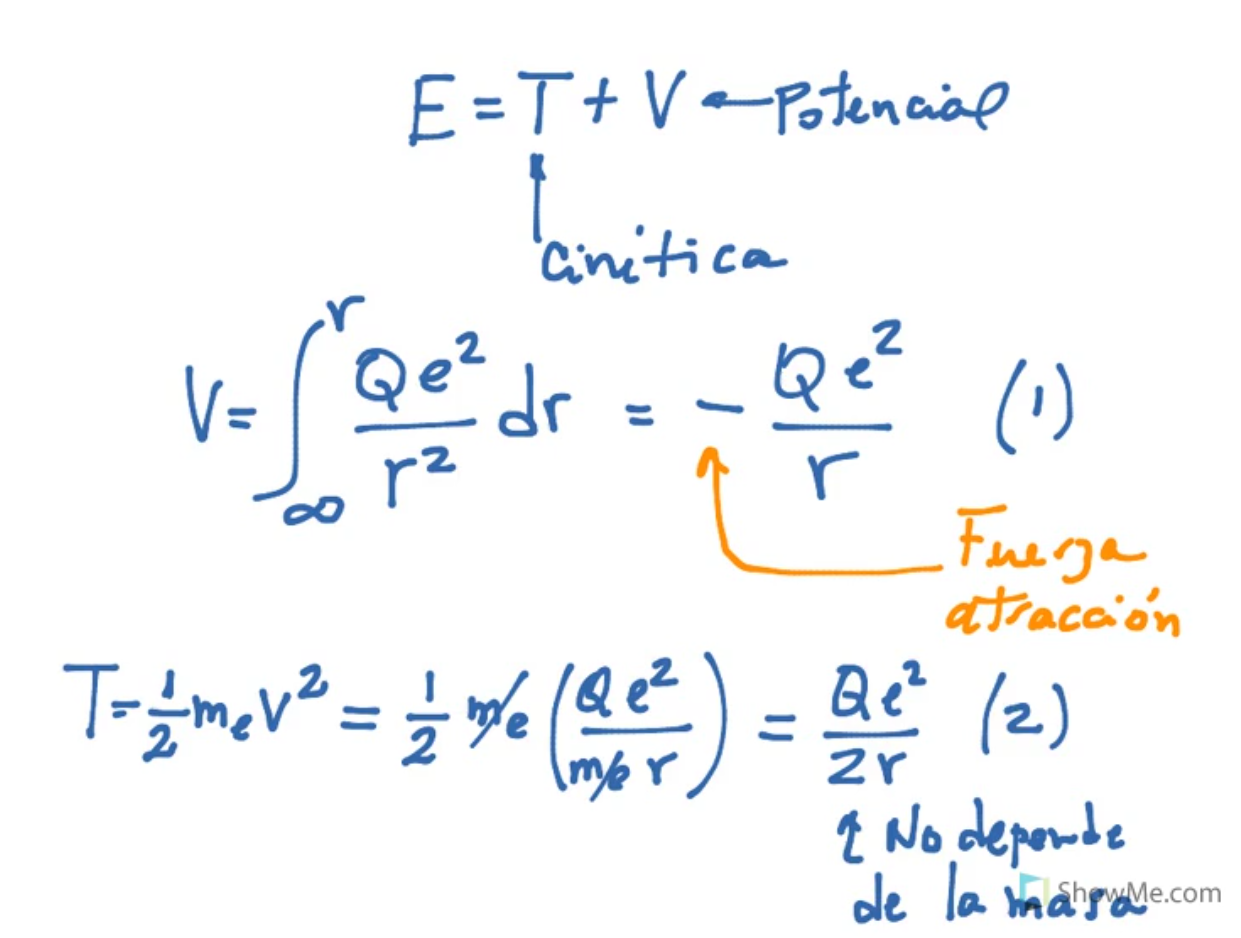 E = T + V ← Potencial
Cinética
V = ∫_∞^r Qe²/r² dr = - Qe²/r (1)
Fuerza
atracción
T = 1/2 mₑv² = 1/2 mₑ (Qe²/mₑ r) = Qe²/2r (2)
↑ No depende
de la masa
ShowMe.com